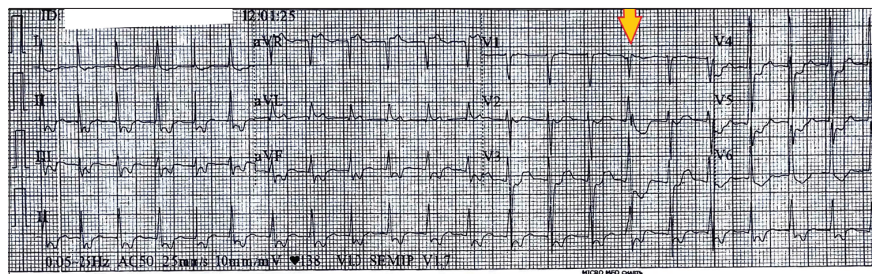 ID: 12:01:25
I aVR V1 V4
II aVL V2 V5
III aVF V3 V6
II
0.05-25Hz AC50 25mm/s 10mm/mV ♥138 V1.7
MICRO MED CHARTS